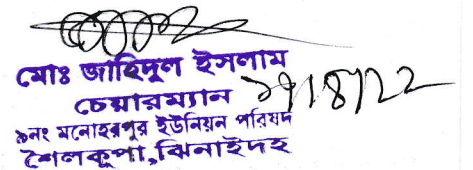 মোঃ জাহিদুল ইসলাম
চেয়ারম্যান
৯নং মনোহরপুর ইউনিয়ন পরিষদ
শৈলকূপা,ঝিনাইদহ